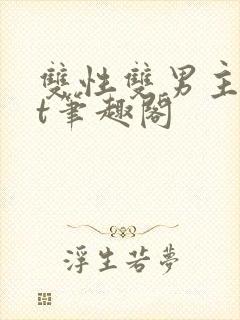 雙性雙男主
t筆趣閣
浮生若夢